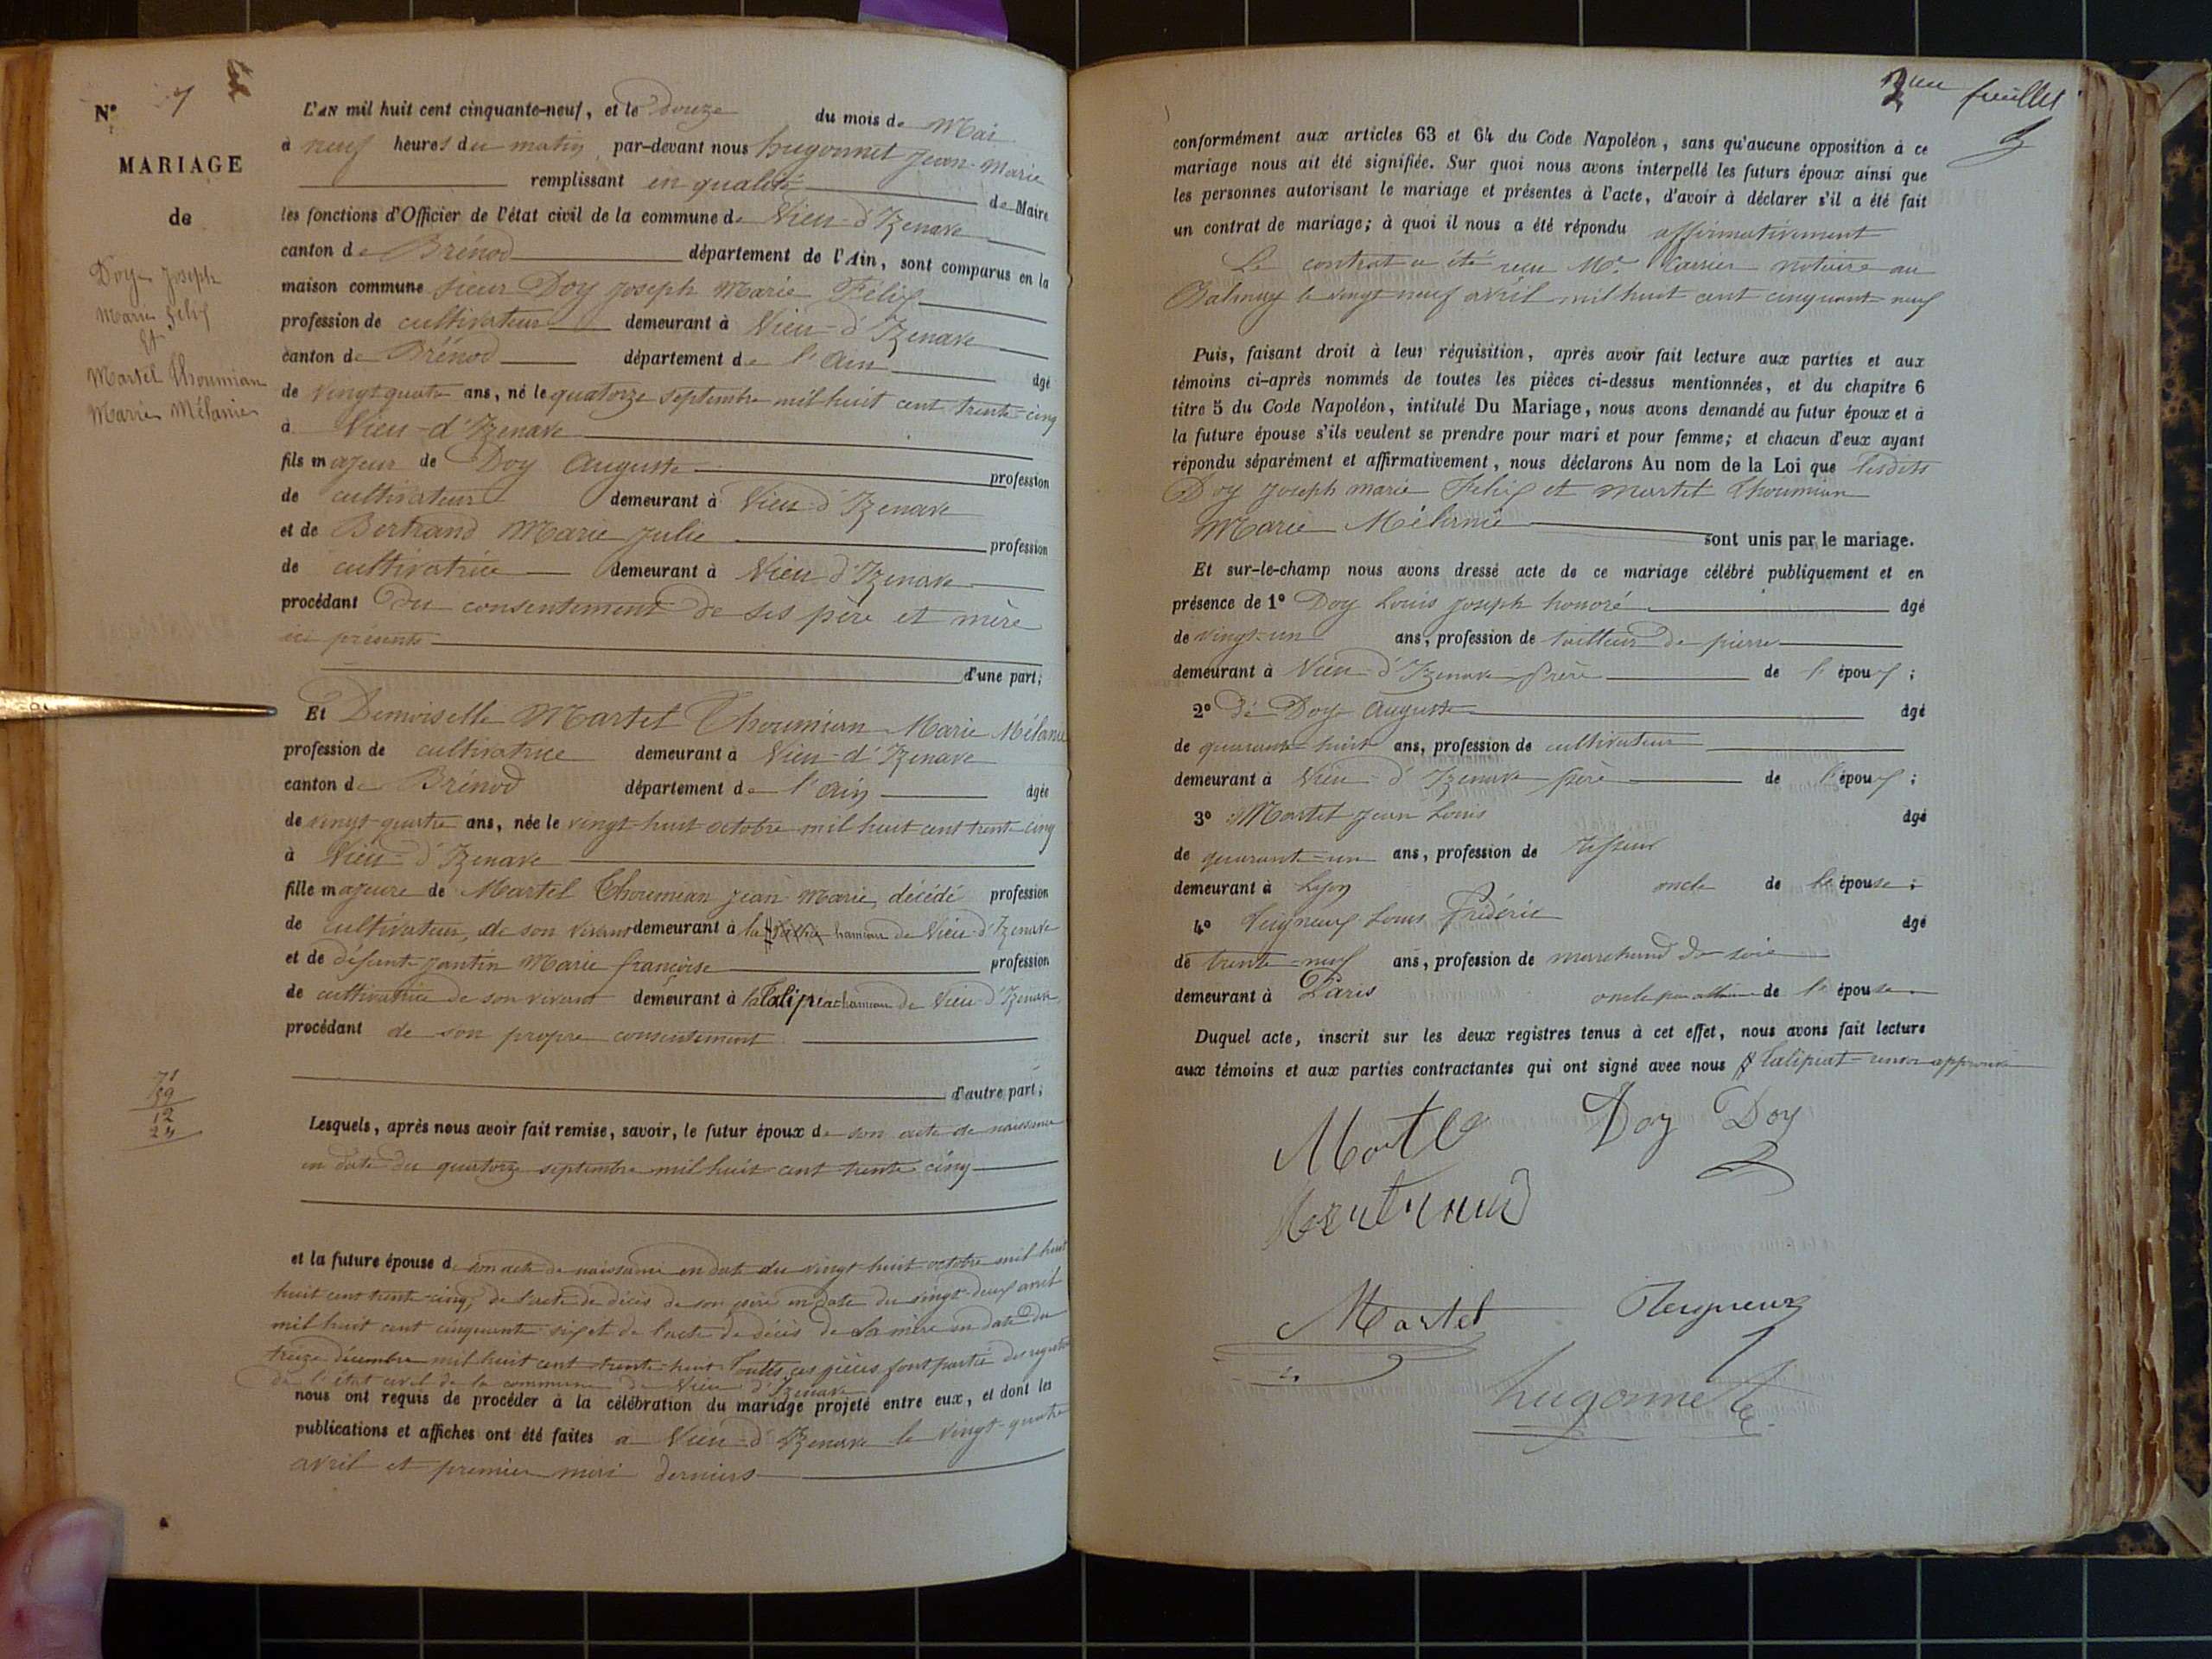 N° 7
MARIAGE
de
Doy Joseph
Marie Félix
Et
Martel Thoumian
Marie Mélanie
71
59
12
24
L'AN mil huit cent cinquante-neuf, et le douze du mois de Mai
à neuf heures du matin par-devant nous hugonnet Jean-Marie
remplissant en qualité de Maire
les fonctions d'Officier de l'état civil de la commune de Vieu-d'Izenave
canton de Brénod département de l'Ain, sont comparus en la
maison commune sieur Doy Joseph Marie Félix
profession de cultivateur demeurant à Vieu-d'Izenave
canton de Brénod département de l'Ain âgé
de vingt quatre ans, né le quatorze septembre mil huit cent trente-cinq
à Vieu-d'Izenave
fils majeur de Doy Auguste profession
de cultivateur demeurant à Vieu d'Izenave
et de Bertrand Marie Julie profession
de cultivatrice demeurant à Vieu d'Izenave
procédant du consentement de ses père et mère
ici présents
d'une part;
Et Demoiselle Martel Thoumian Marie Mélanie
profession de cultivatrice demeurant à Vieu-d'Izenave
canton de Brénod département de l'Ain âgée
de vingt-quatre ans, née le vingt-huit octobre mil huit cent trente cinq
à Vieu-d'Izenave
fille majeure de Martel Thoumian Jean Marie, décédé profession
de cultivateur, de son vivant demeurant à la hameau de Vieu-d'Izenave
et de défunte Jantin Marie françoise profession
de cultivatrice de son vivant demeurant à la Talipiat hameau de Vieu-d'Izenave
procédant de son propre consentement
d'autre part;
Lesquels, après nous avoir fait remise, savoir, le futur époux de son acte de naissance
en date du quatorze septembre mil huit cent trente cinq
et la future épouse de son acte de naissance en date du vingt-huit octobre mil huit
huit cent trente-cinq, de l'acte de décès de son père en date du vingt-deux avril
mil huit cent cinquante six et de l'acte de décès de sa mère en date du
treize décembre mil huit cent trente-huit Toutes ces pièces font partie des registres
de l'état civil de la commune de Vieu d'Izenave
nous ont requis de procéder à la célébration du mariage projeté entre eux, et dont les
publications et affiches ont été faites à Vieu-d'Izenave le vingt-quatre
avril et premier mai derniers
feuillet
conformément aux articles 63 et 64 du Code Napoléon, sans qu'aucune opposition à ce
mariage nous ait été signifiée. Sur quoi nous avons interpellé les futurs époux ainsi que
les personnes autorisant le mariage et présentes à l'acte, d'avoir à déclarer s'il a été fait
un contrat de mariage; à quoi il nous a été répondu affirmativement
Le contrat a été reçu Me. Carrier notaire au
Balmay le vingt neuf avril mil huit cent cinquante neuf
Puis, faisant droit à leur réquisition, après avoir fait lecture aux parties et aux
témoins ci-après nommés de toutes les pièces ci-dessus mentionnées, et du chapitre 6
titre 5 du Code Napoléon, intitulé Du Mariage, nous avons demandé au futur époux et à
la future épouse s'ils veulent se prendre pour mari et pour femme; et chacun d'eux ayant
répondu séparément et affirmativement, nous déclarons Au nom de la Loi que lesdits
Doy Joseph marie Félix et martel Thoumian
Marie Mélanie sont unis par le mariage.
Et sur-le-champ nous avons dressé acte de ce mariage célébré publiquement et en
présence de 1° Doy Louis Joseph honoré âgé
de vingt-un ans, profession de tailleur de pierre
demeurant à Vieu-d'Izenave frère de l'époux;
2° de Doy Auguste âgé
de quarante-huit ans, profession de cultivateur
demeurant à Vieu-d'Izenave père de l'époux;
3° Martel Jean Louis âgé
de quarante-un ans, profession de
demeurant à Lyon oncle de l'épouse;
4° Louis Frédéric âgé
de trente-neuf ans, profession de marchand de soie
demeurant à Paris oncle par alliance de l'épouse
Duquel acte, inscrit sur les deux registres tenus à cet effet, nous avons fait lecture
aux témoins et aux parties contractantes qui ont signé avec nous Talipiat-renvoi approuvé
Doy Doy
Martel
hugonnet